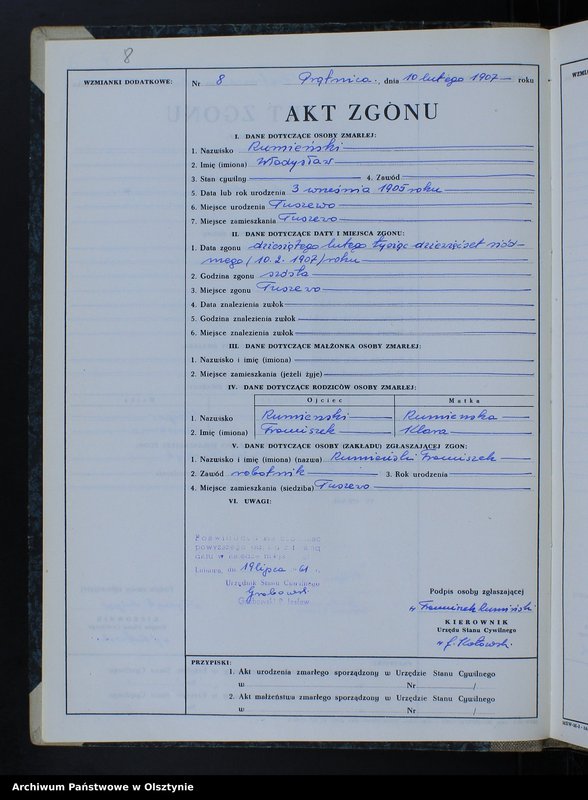 8
WZMIANKI DODATKOWE:
Nr 8 Prątnica, dnia 10 lutego 1907 roku
AKT ZGONU
I. DANE DOTYCZĄCE OSOBY ZMARŁEJ:
1. Nazwisko Rumieński
2. Imię (imiona) Władysław
3. Stan cywilny 4. Zawód
5. Data lub rok urodzenia 3 września 1905 roku
6. Miejsce urodzenia Tuszewo
7. Miejsce zamieszkania Tuszewo
II. DANE DOTYCZĄCE DATY I MIEJSCA ZGONU:
1. Data zgonu dziesiątego lutego tysiąc dziewięćset siód-
mego (10.2.1907) roku
2. Godzina zgonu szósta
3. Miejsce zgonu Tuszewo
4. Data znalezienia zwłok
5. Godzina znalezienia zwłok
6. Miejsce znalezienia zwłok
III. DANE DOTYCZĄCE MAŁŻONKA OSOBY ZMARŁEJ:
1. Nazwisko i imię (imiona)
2. Miejsce zamieszkania (jeżeli żyje)
IV. DANE DOTYCZĄCE RODZICÓW OSOBY ZMARŁEJ:
Ojciec Matka
1. Nazwisko Rumieński Rumieńska
2. Imię (imiona) Franciszek Klara
V. DANE DOTYCZĄCE OSOBY (ZAKŁADU) ZGŁASZAJĄCEJ ZGON:
1. Nazwisko i imię (imiona) (nazwa) Rumieński Franciszek
2. Zawód robotnik 3. Rok urodzenia
4. Miejsce zamieszkania (siedziba) Tuszewo
VI. UWAGI:
powyższego
Lubawa, dn. 19 lipca 61
Urzędnik Stanu Cywilnego
Grabowski
Grabowski
Podpis osoby zgłaszającej
Franciszek Rumiński
KIEROWNIK
Urzędu Stanu Cywilnego
PRZYPISKI:
1. Akt urodzenia zmarłego sporządzony w Urzędzie Stanu Cywilnego
w Nr /
2. Akt małżeństwa zmarłego sporządzony w Urzędzie Stanu Cywilnego
w Nr /
Archiwum Państwowe w Olsztynie